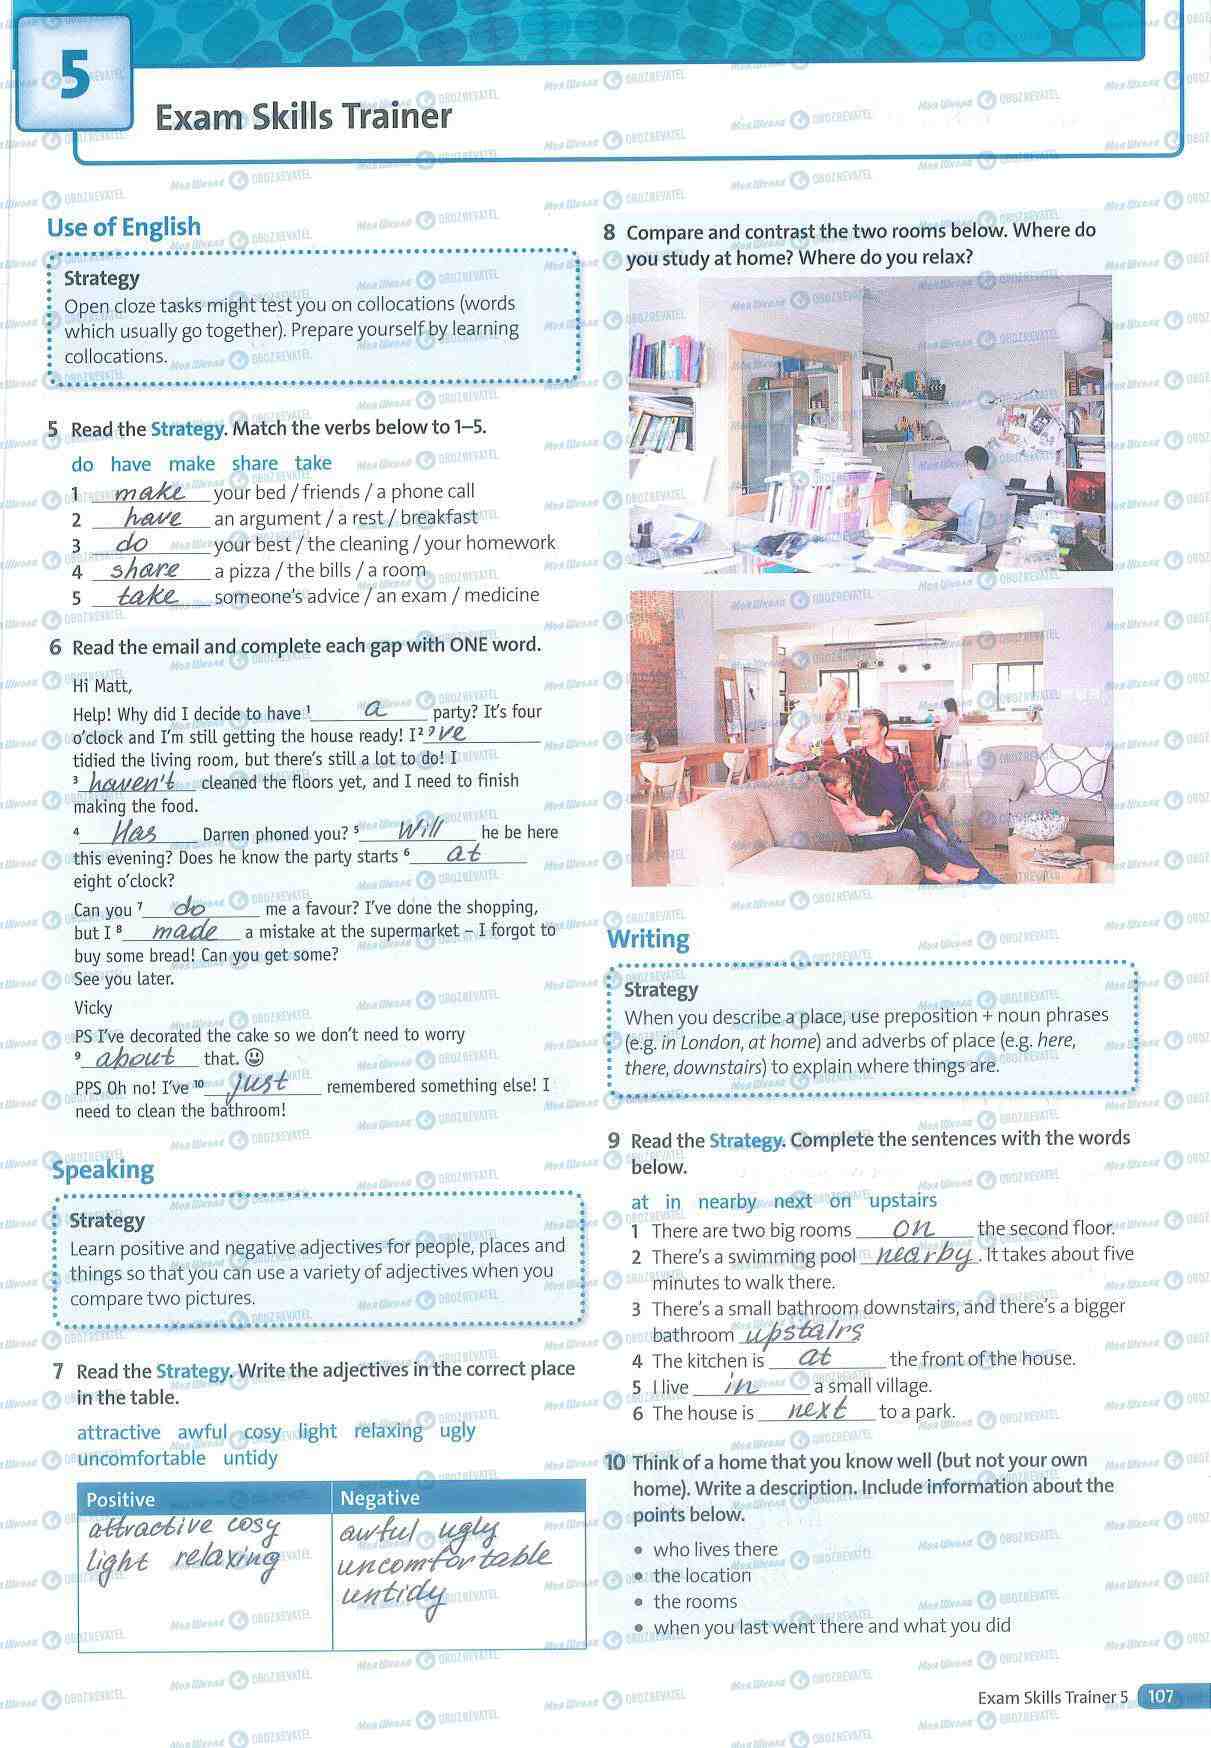 5
Exam Skills Trainer
Use of English
Strategy
Open cloze tasks might test you on collocations (words
which usually go together). Prepare yourself by learning
collocations.
5 Read the Strategy. Match the verbs below to 1–5.
do have make share take
1 make your bed / friends / a phone call
2 have an argument / a rest / breakfast
3 do your best / the cleaning / your homework
4 share a pizza / the bills / a room
5 take someone's advice / an exam / medicine
6 Read the email and complete each gap with ONE word.
Hi Matt,
Help! Why did I decide to have ¹ a party? It's four
o'clock and I'm still getting the house ready! I ² 've
tidied the living room, but there's still a lot to do! I
³ haven't cleaned the floors yet, and I need to finish
making the food.
⁴ Has Darren phoned you? ⁵ Will he be here
this evening? Does he know the party starts ⁶ at
eight o'clock?
Can you ⁷ do me a favour? I've done the shopping,
but I ⁸ made a mistake at the supermarket – I forgot to
buy some bread! Can you get some?
See you later.
Vicky
PS I've decorated the cake so we don't need to worry
⁹ about that. 😀
PPS Oh no! I've ¹⁰ just remembered something else! I
need to clean the bathroom!
Speaking
Strategy
Learn positive and negative adjectives for people, places and
things so that you can use a variety of adjectives when you
compare two pictures.
7 Read the Strategy. Write the adjectives in the correct place
in the table.
attractive awful cosy light relaxing ugly
uncomfortable untidy
Positive Negative
attractive cosy awful ugly
light relaxing uncomfortable
untidy
8 Compare and contrast the two rooms below. Where do
you study at home? Where do you relax?
Writing
Strategy
When you describe a place, use preposition + noun phrases
(e.g. in London, at home) and adverbs of place (e.g. here,
there, downstairs) to explain where things are.
9 Read the Strategy. Complete the sentences with the words
below.
at in nearby next on upstairs
1 There are two big rooms on the second floor.
2 There's a swimming pool nearby. It takes about five
minutes to walk there.
3 There's a small bathroom downstairs, and there's a bigger
bathroom upstairs.
4 The kitchen is at the front of the house.
5 I live in a small village.
6 The house is next to a park.
10 Think of a home that you know well (but not your own
home). Write a description. Include information about the
points below.
• who lives there
• the location
• the rooms
• when you last went there and what you did
Exam Skills Trainer 5 107
Моя Школа OBOZREVATEL